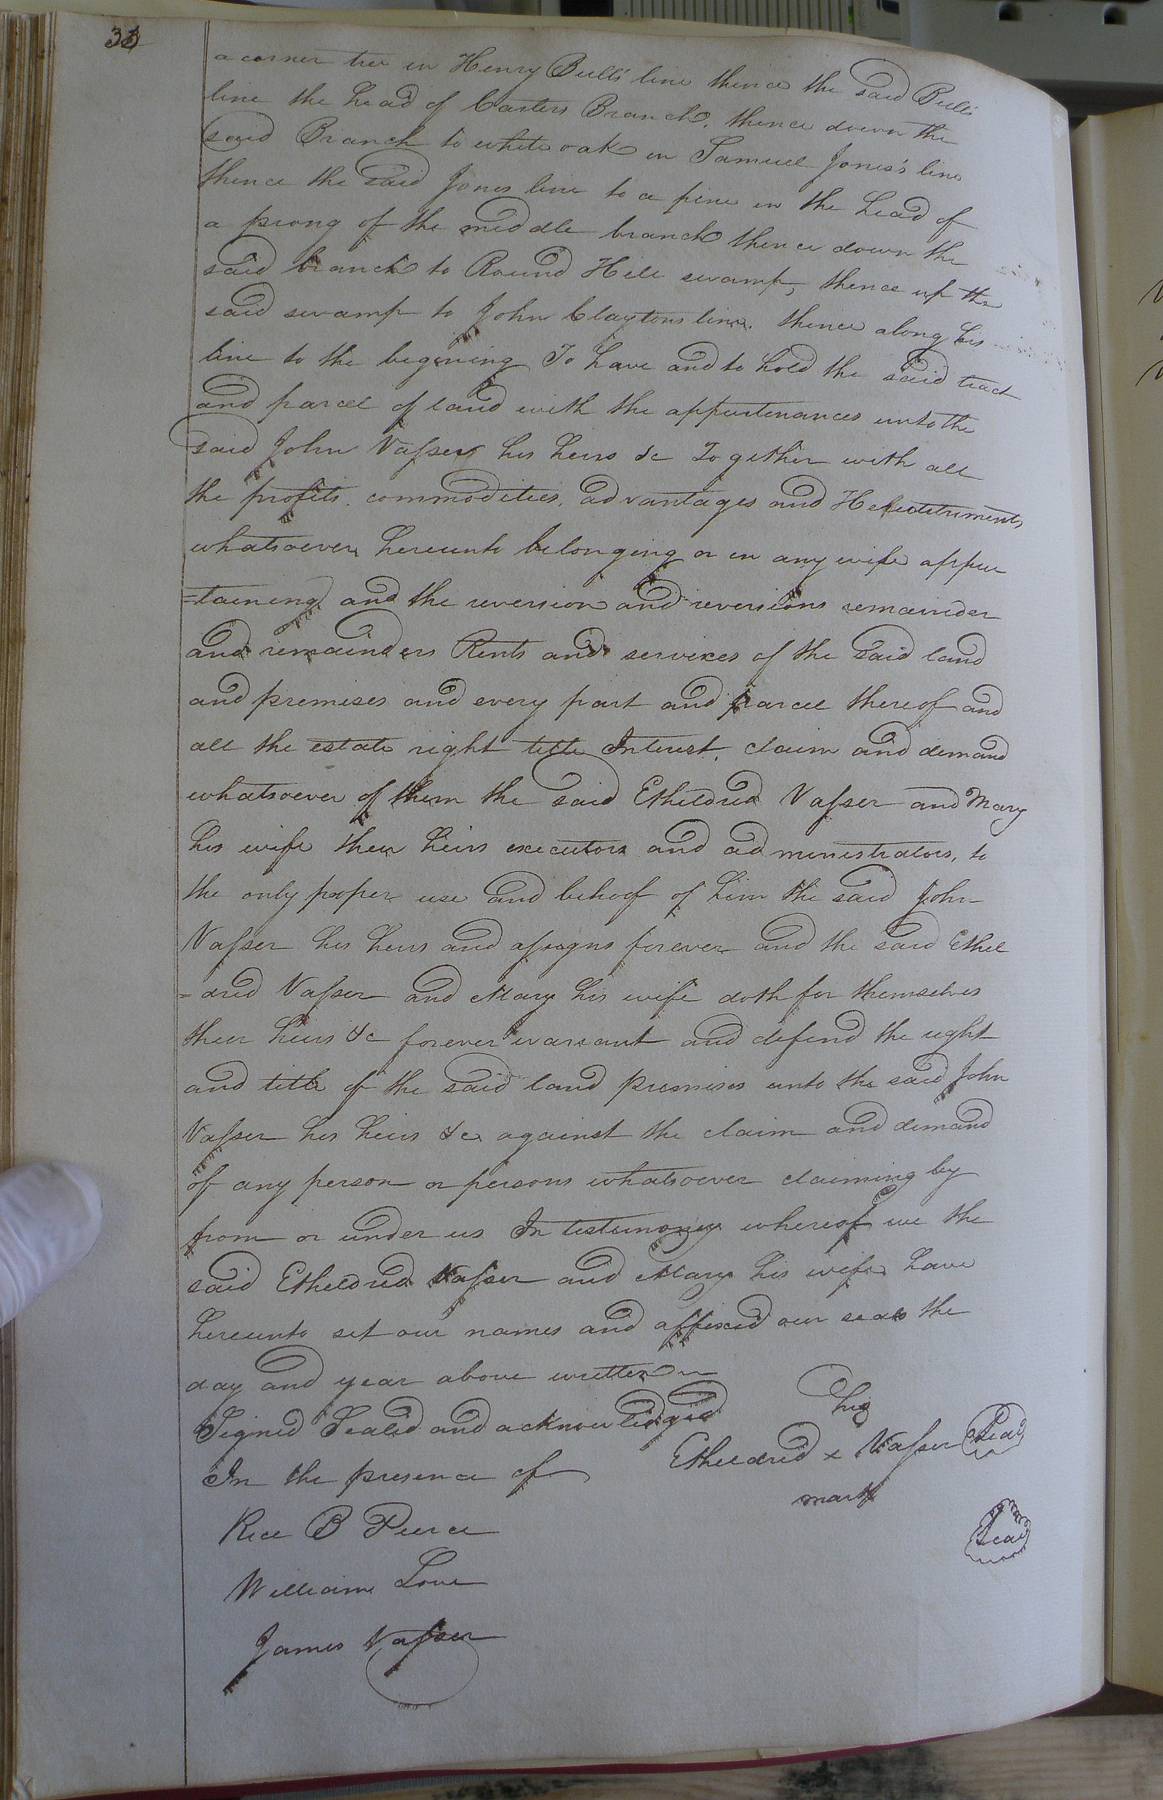 a corner tree in Henry Bells line thence the said Bells
line the head of Carters Branch, thence down the
said Branch to white oak in Samuel Jones's line
thence the said Jones line to a pine in the head of
a prong of the middle branch thence down the
said branch to Round Hill swamp, thence up the
said swamp to John Claytons line. thence along his
line to the begining To have and to hold the said tract
and parcel of land with the appurtenances unto the
said John Vaſser his heirs &c Together with all
the profits. commodities. advantages and
whatsoever hereunto belonging or in any wiſe appur
=taining and the reversion and reversions remainder
and remainders Rents and services of the said land
and premises and every part and parcel thereof and
all the estate right title Interest, claim and demand
whatsoever of them the said Etheldred Vaſser and Mary
his wife their heirs executors and administrators, to
the only proper use and behoof of him the said John
Vaſser his heirs and aſsigns forever and the said Ethel
=dred Vaſser and Mary his wife doth for themselves
their heirs &c forever warrant and defend the right
and title of the said land premises unto the said John
Vaſser his heirs &c against the claim and demand
of any person or persons whatsoever claiming by
from or under us In testimony whereof we the
said Etheldred Vaſser and Mary his wife have
hereunto set our names and affixed our seals the
day and year above written
Signed Seald and acknowledged
In the presence of
his
Etheldred x Vaſser Seal
mark
Rice B Pierce
Seal
William Love
James Vaſser